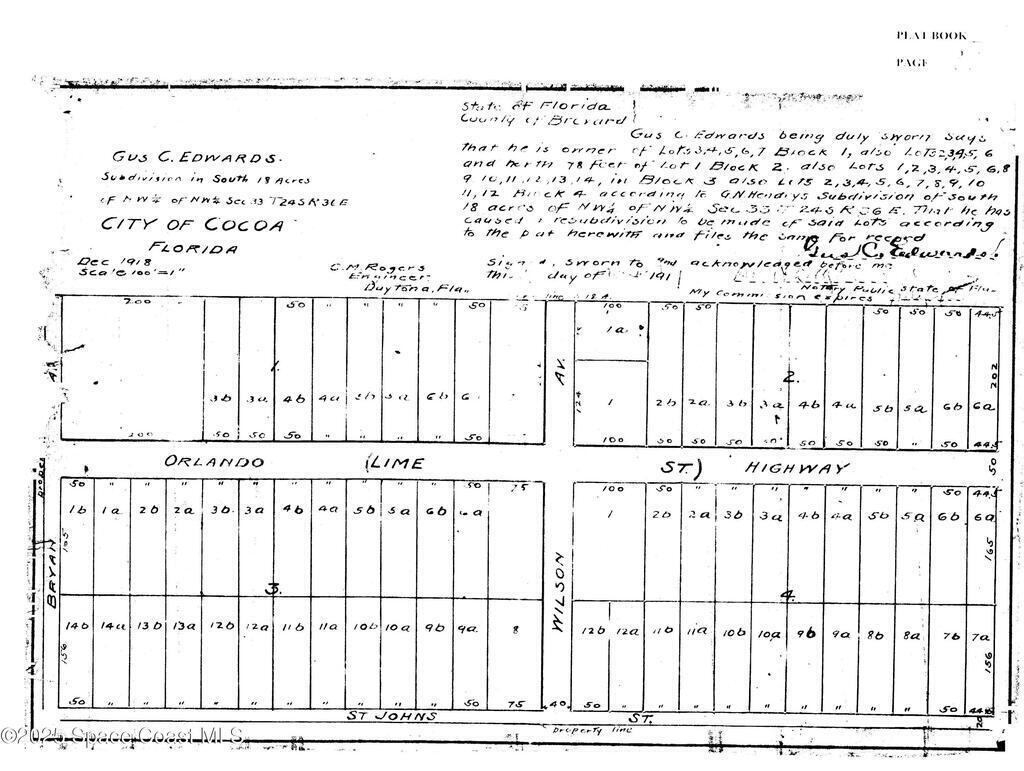 PLAT BOOK
PAGE
State of Florida
County of Brevard
Gus C. Edwards being duly sworn says
that he is owner of Lots 3,4,5,6,7 Block 1, also Lots 2,3,4,5,6
and North 78 feet of Lot 1 Block 2. also Lots 1,2,3,4,5,6,8
9 10,11,12,13,14, in Block 3 also Lots 2,3,4,5,6,7,8,9,10
11,12 Block 4 according to G.N.Hendrys Subdivision of South
18 acres of NW¼ of NW¼ Sec 33 T 24S R 36 E. That he has
caused a resubdivision to be made of said Lots according
to the plat herewith and files the same for record
Gus C. Edwards.
Sign & sworn to and acknowledged before me
this day of 191
Notary Public State of Fla.
My commission expires
GUS C. EDWARDS.
Subdivision in South 18 Acres
of NW¼ of NW¼ Sec 33 T24S R 36 E
CITY OF COCOA
FLORIDA
Dec 1918
Scale 100'=1"
C.M. Rogers
Engineer
Daytona, Fla.
200 50 " " " " 50
line
100 50 50 50 50 50 44.5
1a
1.
2.
AV.
124
202
3b 3a 4b 4a 5b 5a 6b 6
1 2b 2a 3b 3a 4b 4a 5b 5a 6b 6a
200 50 50 50 " " " " 50
100 50 50 50 50 50 50 50 " 50 44.5
ORLANDO (LIME ST.) HIGHWAY
50
50 " " " " " " " " " " 50 75
100 50 " " " " " " " " 50 44.5
1b 1a 2b 2a 3b 3a 4b 4a 5b 5a 6b 6a
1 2b 2a 3b 3a 4b 4a 5b 5a 6b 6a
165
165
BRYAN
WILSON
3.
4.
14b 14a 13b 13a 12b 12a 11b 11a 10b 10a 9b 9a 8
12b 12a 11b 11a 10b 10a 9b 9a 8b 8a 7b 7a
156
156
50 " " " " " " " " " " 50 75
40
50 " " " " " " " " " 50 44.5
ST JOHNS ST.
20
property line
©2025 Space Coast MLS